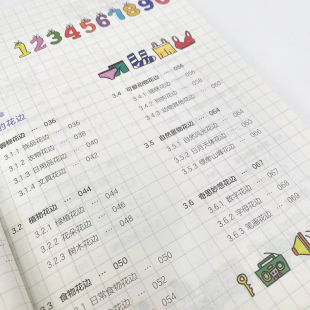 1 2 3 4 5 6 7 8 9
的花边
036
3.1.1 饰品花边 … 036
3.1.2 衣物花边 … 038
3.1.3 日用品花边 … 040
3.1.4 文具花边 … 042
3.2 植物花边 … 044
3.2.1 绿植花边 … 044
3.2.2 花朵花边 … 046
3.2.3 树木花边 … 048
3.3 食物花边 … 050
日常食物花边 … 050
花边 … 052
054
3.4 可爱动物花边 … 056
3.4.1 猫咪花边 … 056
3.4.2 狗狗花边 … 058
3.4.3 动物其他花边
3.5 自然景物花边 … 064
3.5.1 自然风光花边 … 064
3.5.2 日月天体花边 … 065
3.5.3 德意山峰花边 … 066
3.6 奇思妙想花边 … 067
3.6.1 数字花边 … 067
3.6.2 字母花边 … 068
3.6.3 笔画花边 … 069